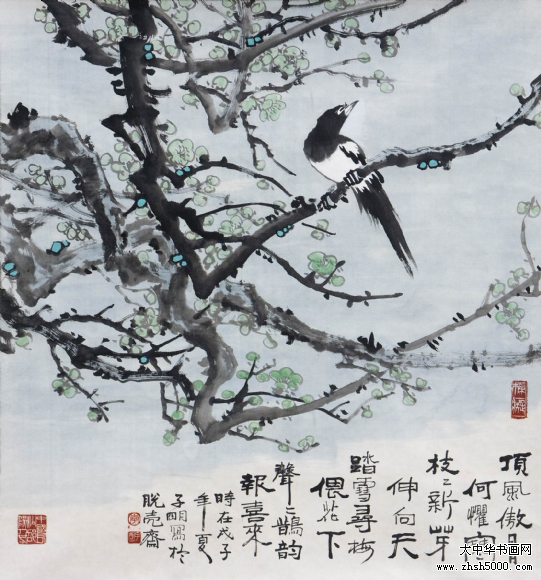 頂風傲骨
何懼寒
枝〻新芽
伸向天
踏雪尋梅
偎花下
聲〻鵲韵
報喜來
時在戊子
年夏
子明寫於
脱壳齋
大中华书画网
www.zhsh5000.com